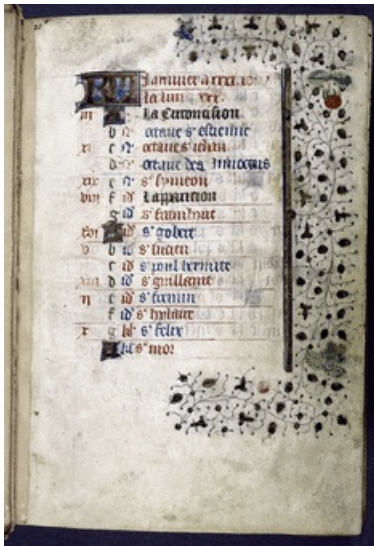 KL Januier a xxxi. iours
la lune xxx.
iii A La Circoncision
b octaue s' estienne
xi c octaue s' iehan
d octaue des Innocens
xix e s' symeon
viii f Laparicion
g s'
xvi A s' gobert
v b s' lucien
c id' s' poul hermite
xiii d id' s' guillaume
ii e id' s' fremin
f id' s' hylaire
x g kl' s' felix
A kl' s' mor